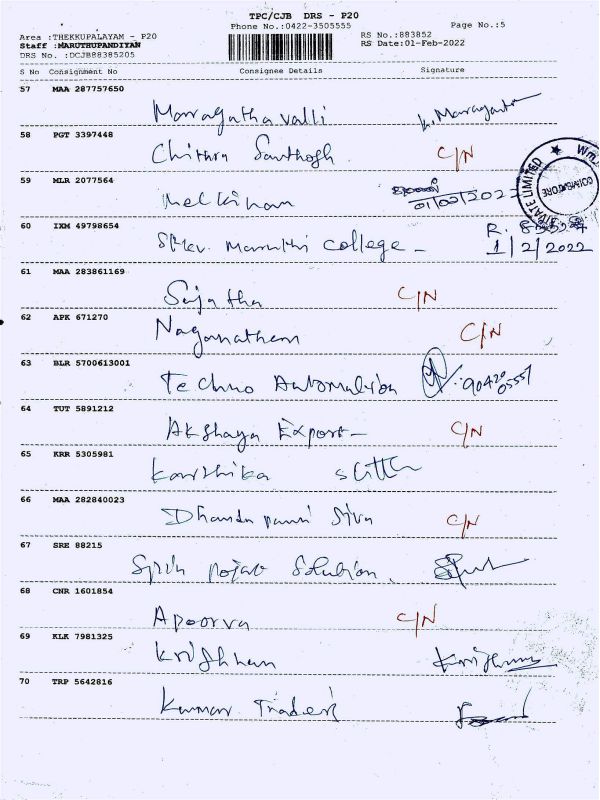 TPC/CJB DRS - P20
Phone No.:0422-3505555 Page No.:5
Area :THEKKUPALAYAM - P20 RS No.:883852
Staff :MARUTHUPANDIYAN RS Date:01-Feb-2022
DRS No. :DCJB88385205
S No Consignment No Consignee Details Signature
57 MAA 287757650
Marragatha valli
58 PGT 3397448
Chithra Santhosh C/N
59 MLR 2077564
01/02/2022
60 IXM 49798654
Maruthi College -
1/2/2022
61 MAA 283861169
Sujatha C/N
62 APK 671270
Naganathan C/N
63 BLR 5700613001
Techno Automation
64 TUT 5891212
Akshaya Export- C/N
65 KRR 5305981
Karthika
66 MAA 282840023
Siva C/N
67 SRE 88215
Solution
68 CNR 1601854
Apoorva C/N
69 KLK 7981325
Krishnan
70 TRP 5642816
Kumar Traders